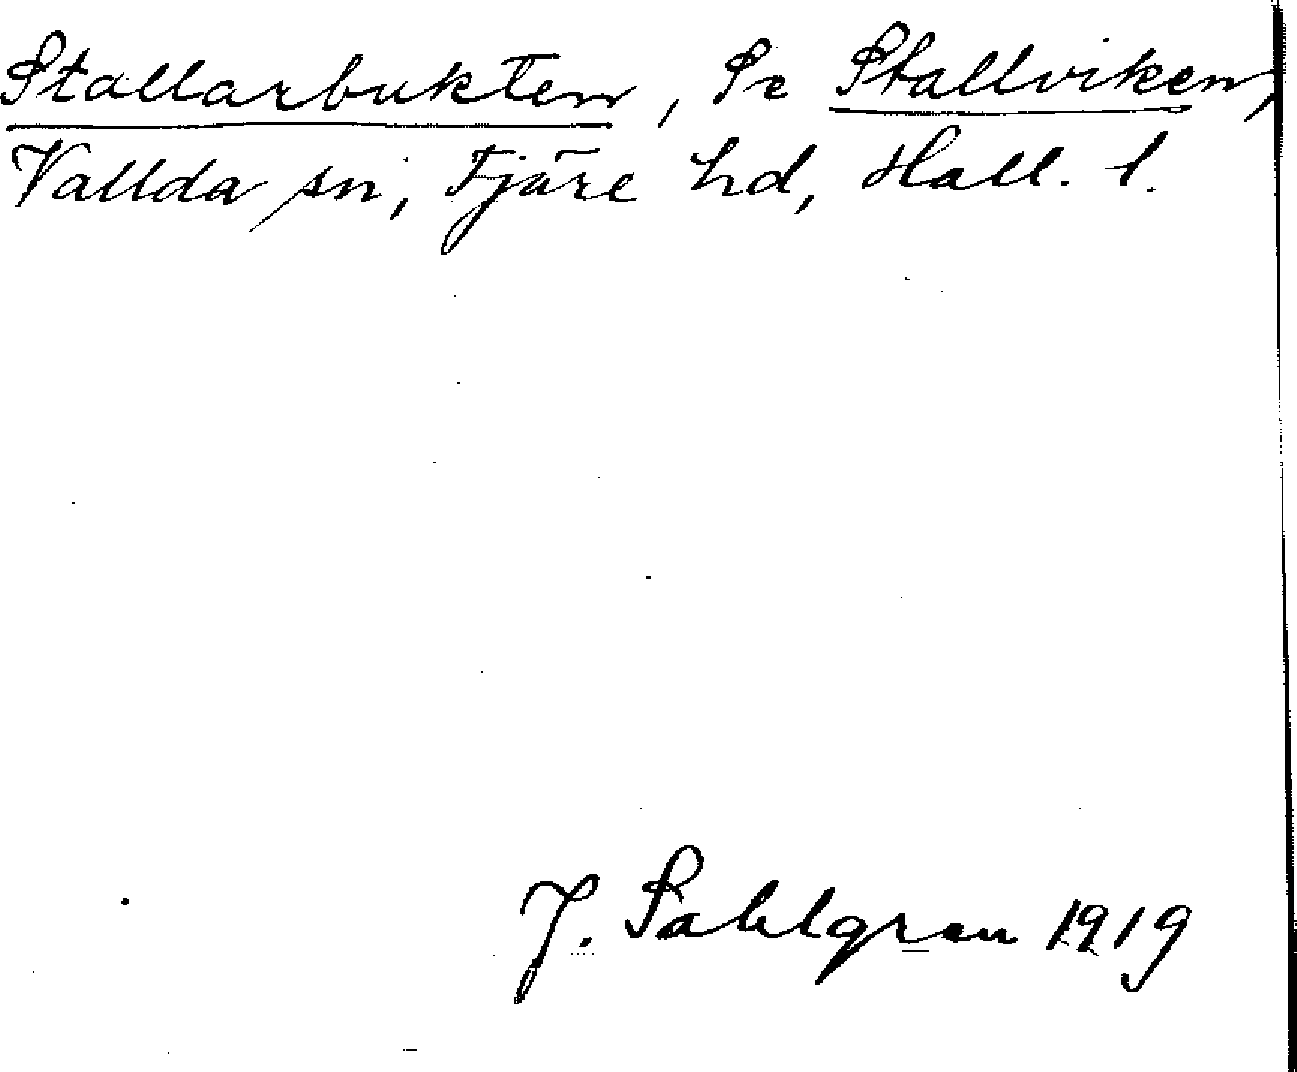 Stallarbukten, Se Stallviken,
Vallda sn, Fjäre hd, Hall. l.
J. Sahlgren 1919